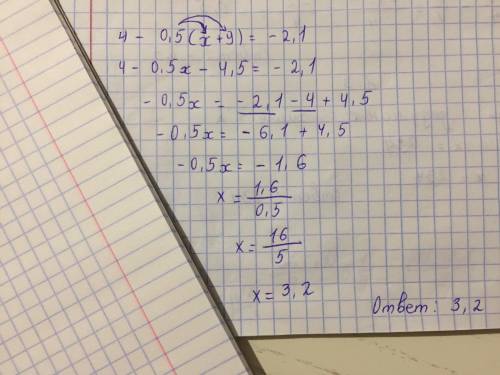 4 - 0,5(x+9) = - 2,1
4 - 0,5x - 4,5 = - 2,1
- 0,5x = - 2,1 - 4 + 4,5
- 0,5x = - 6,1 + 4,5
- 0,5x = - 1,6
x = 1,6/0,5
x = 16/5
x = 3,2
Ответ: 3,2